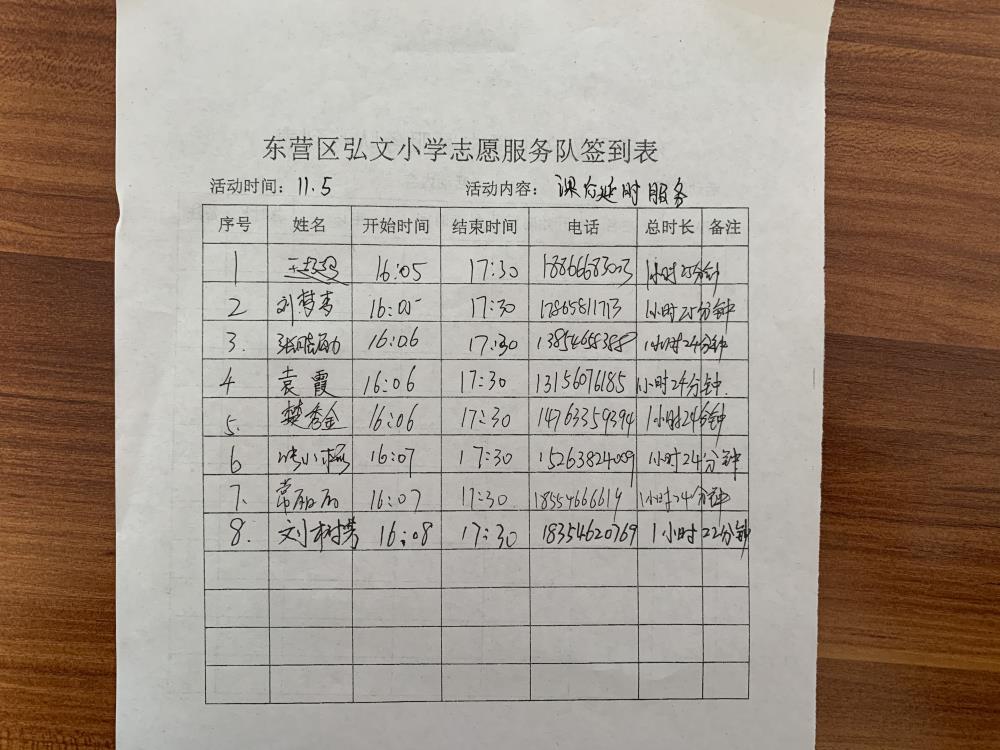 东营区弘文小学志愿服务队签到表
活动时间：11.5 活动内容：课后延时服务
序号 姓名 开始时间 结束时间 电话 总时长 备注
1 16:05 17:30 1小时25分钟
2 刘梦青 16:05 17:30 17865811713 1小时25分钟
3. 16:06 17:30 13854658388 1小时24分钟
4 袁霞 16:06 17:30 13156076185 1小时24分钟.
5. 樊秀金 16:06 17:30 14763359394 1小时24分钟
6 16:07 17:30 15263824009 1小时24分钟
7. 常丽丽 16:07 17:30 18554666614 1小时24分钟
8. 刘树携 16:08 17:30 18354620769 1小时22分钟